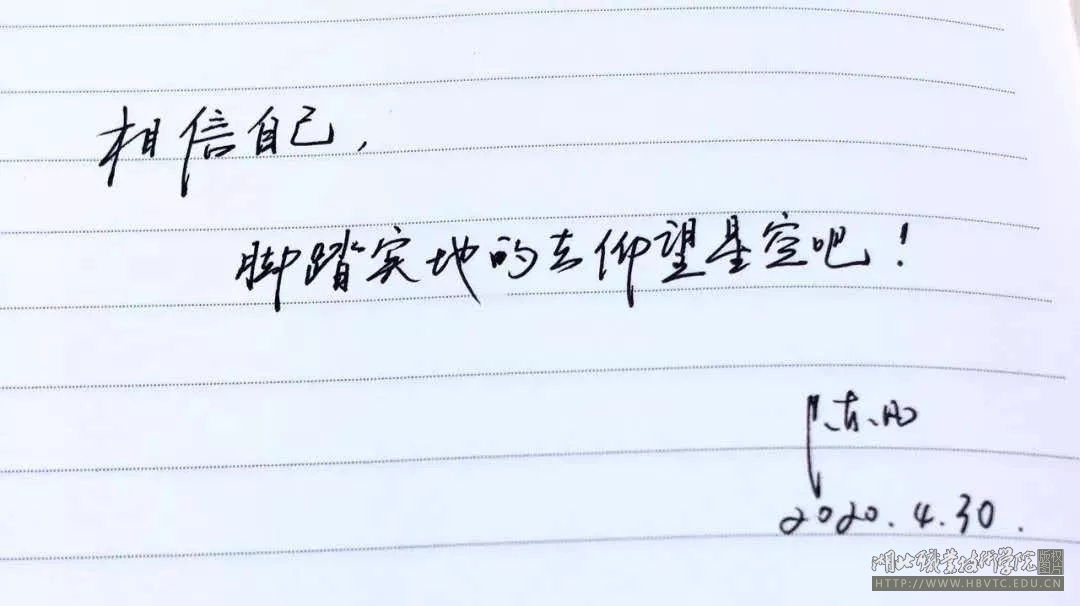 相信自己，
脚踏实地的去仰望星空吧！
2020.4.30.
湖北职业技术学院
版权
图片
HTTP://WWW.HBVTC.EDU.CN